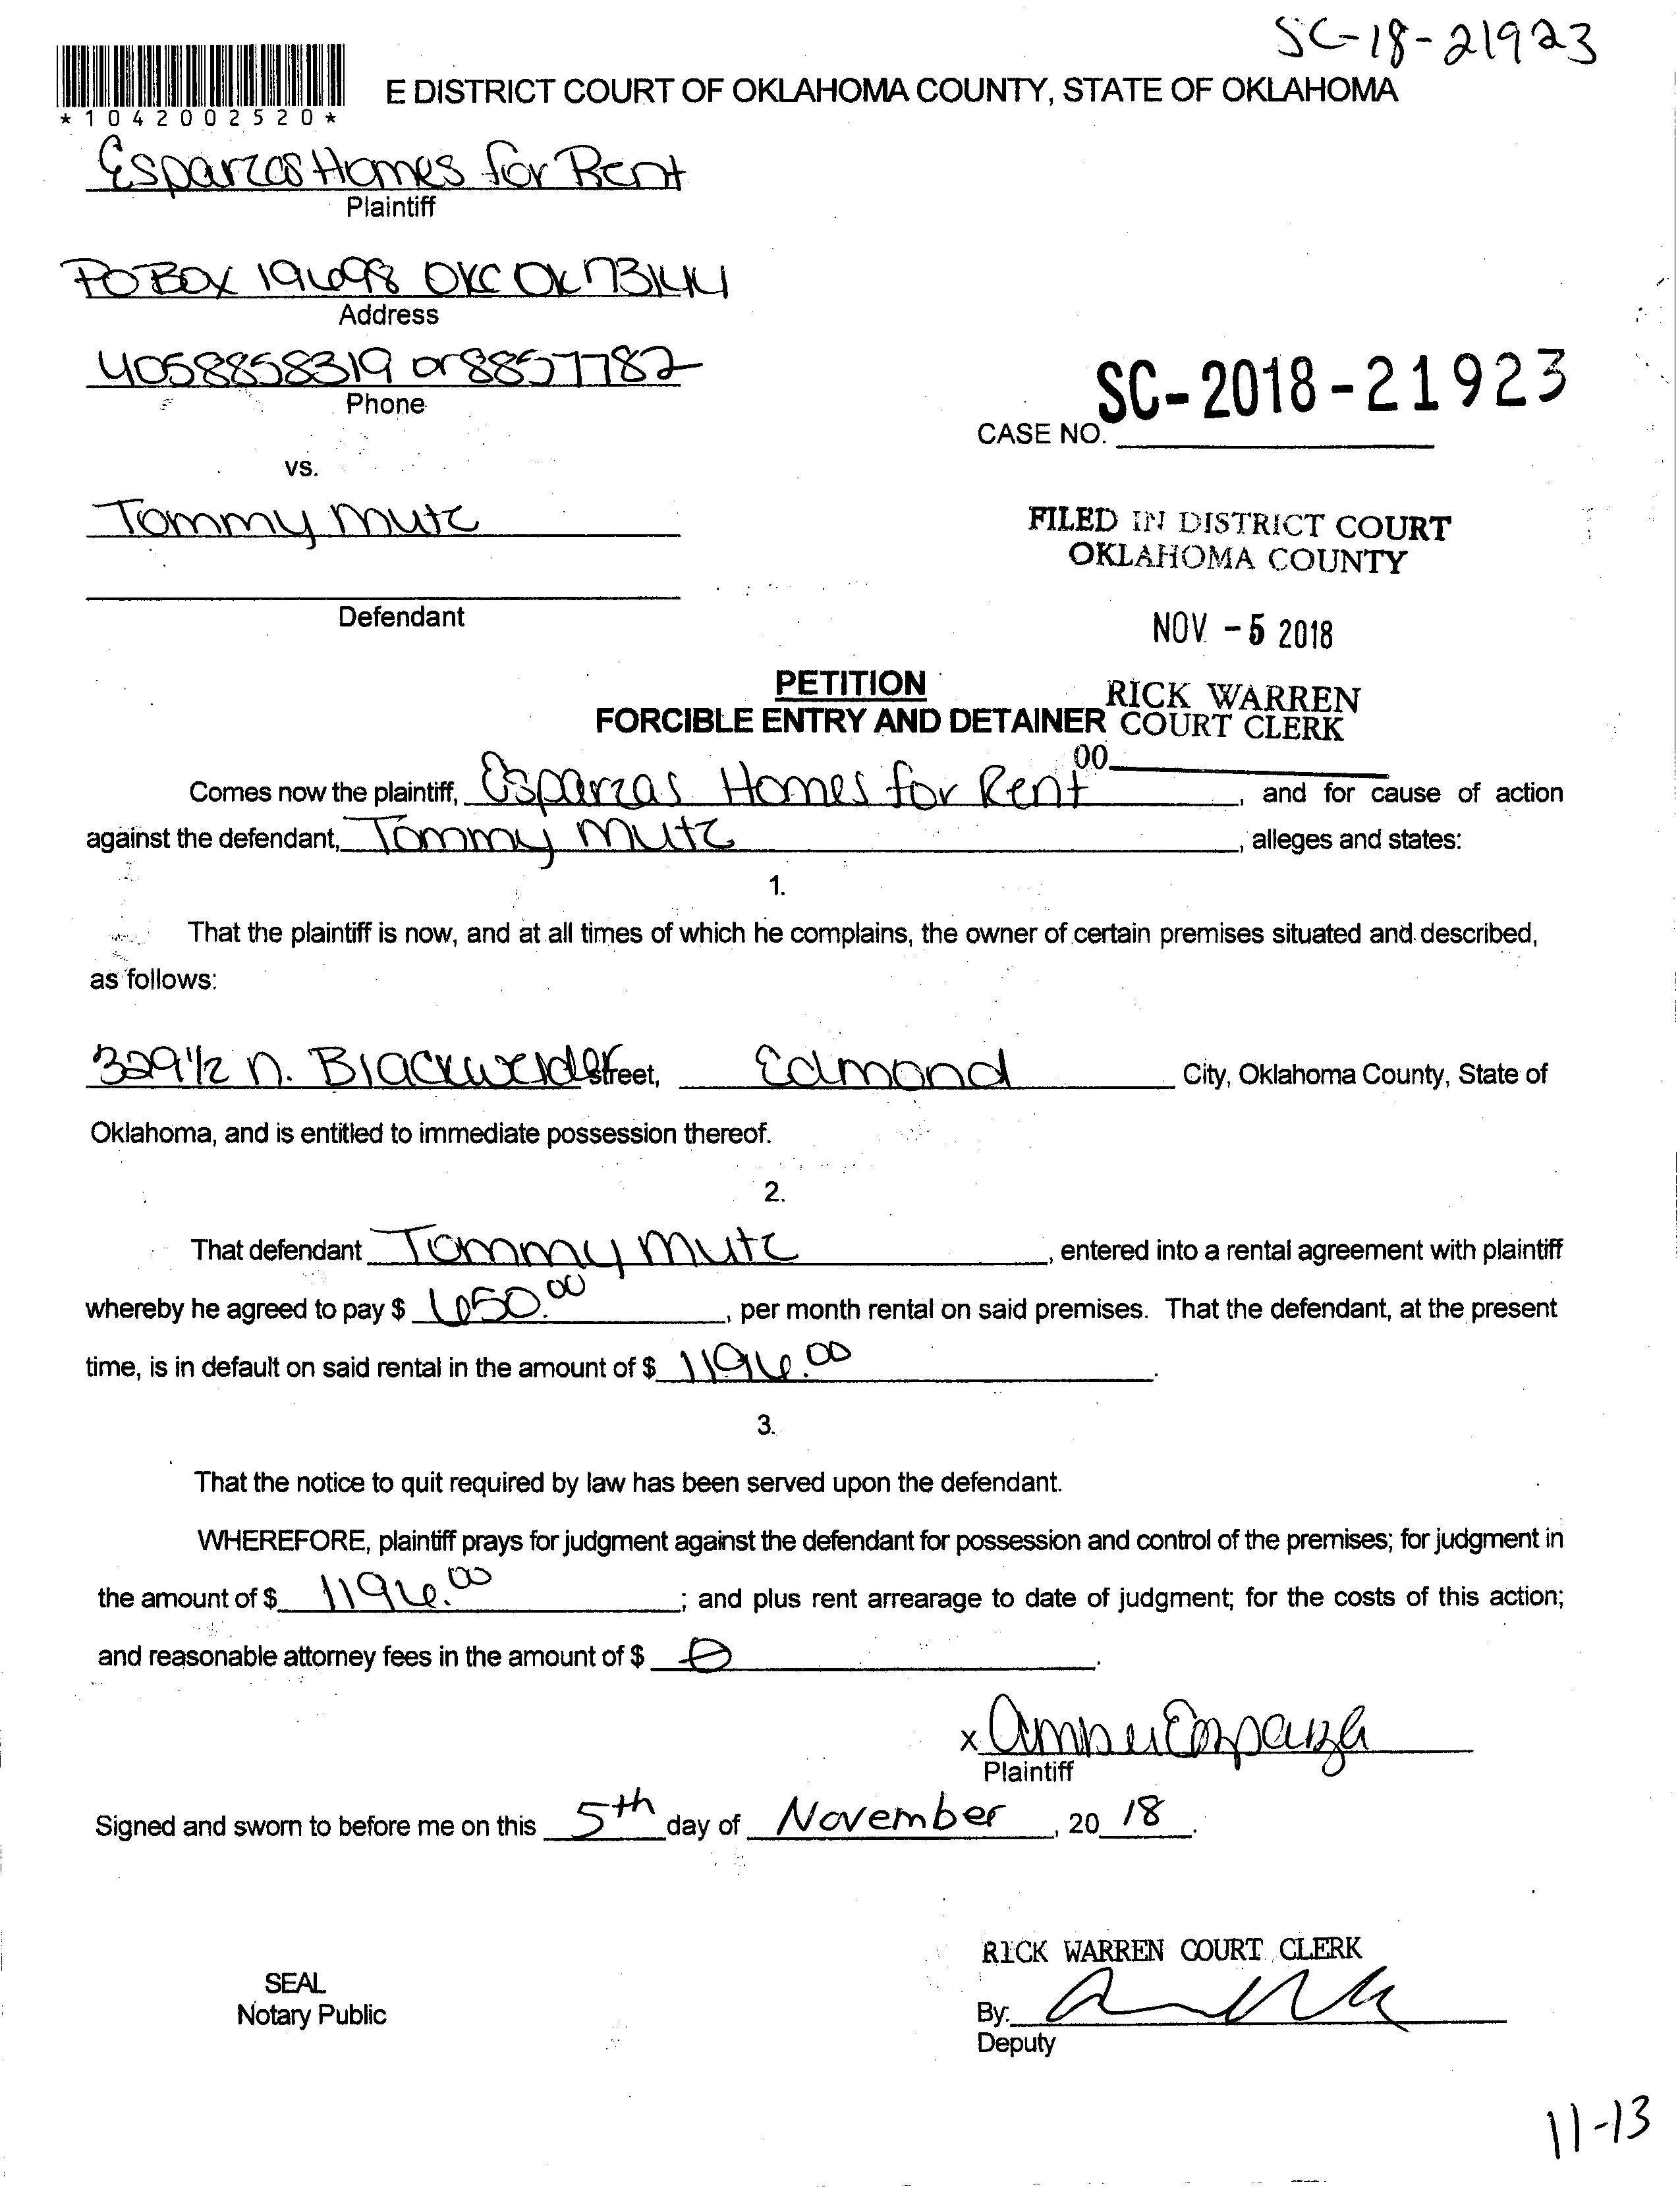 SC-18-21923
*1042002520*
E DISTRICT COURT OF OKLAHOMA COUNTY, STATE OF OKLAHOMA
Esparzas Homes for Rent
Plaintiff
PO BOX 19698 OKC OK 73144
Address
4058858319 or 8857782
Phone
SC-2018-21923
CASE NO.
vs.
Tommy Mutz
FILED IN DISTRICT COURT
OKLAHOMA COUNTY
Defendant
NOV -5 2018
PETITION
FORCIBLE ENTRY AND DETAINER
RICK WARREN
COURT CLERK
00
Comes now the plaintiff, Esparzas Homes for Rent, and for cause of action
against the defendant, Tommy Mutz, alleges and states:
1.
That the plaintiff is now, and at all times of which he complains, the owner of certain premises situated and described,
as follows:
329 1/2 N. Blackwelder Street, Edmond City, Oklahoma County, State of
Oklahoma, and is entitled to immediate possession thereof.
2.
That defendant Tommy Mutz, entered into a rental agreement with plaintiff
whereby he agreed to pay $ 650.00, per month rental on said premises. That the defendant, at the present
time, is in default on said rental in the amount of $ 1196.00.
3.
That the notice to quit required by law has been served upon the defendant.
WHEREFORE, plaintiff prays for judgment against the defendant for possession and control of the premises; for judgment in
the amount of $ 1196.00; and plus rent arrearage to date of judgment; for the costs of this action;
and reasonable attorney fees in the amount of $ 0.
x Amber Esparza
Plaintiff
Signed and sworn to before me on this 5th day of November, 2018.
RICK WARREN COURT CLERK
SEAL
Notary Public
By:
Deputy
11-13